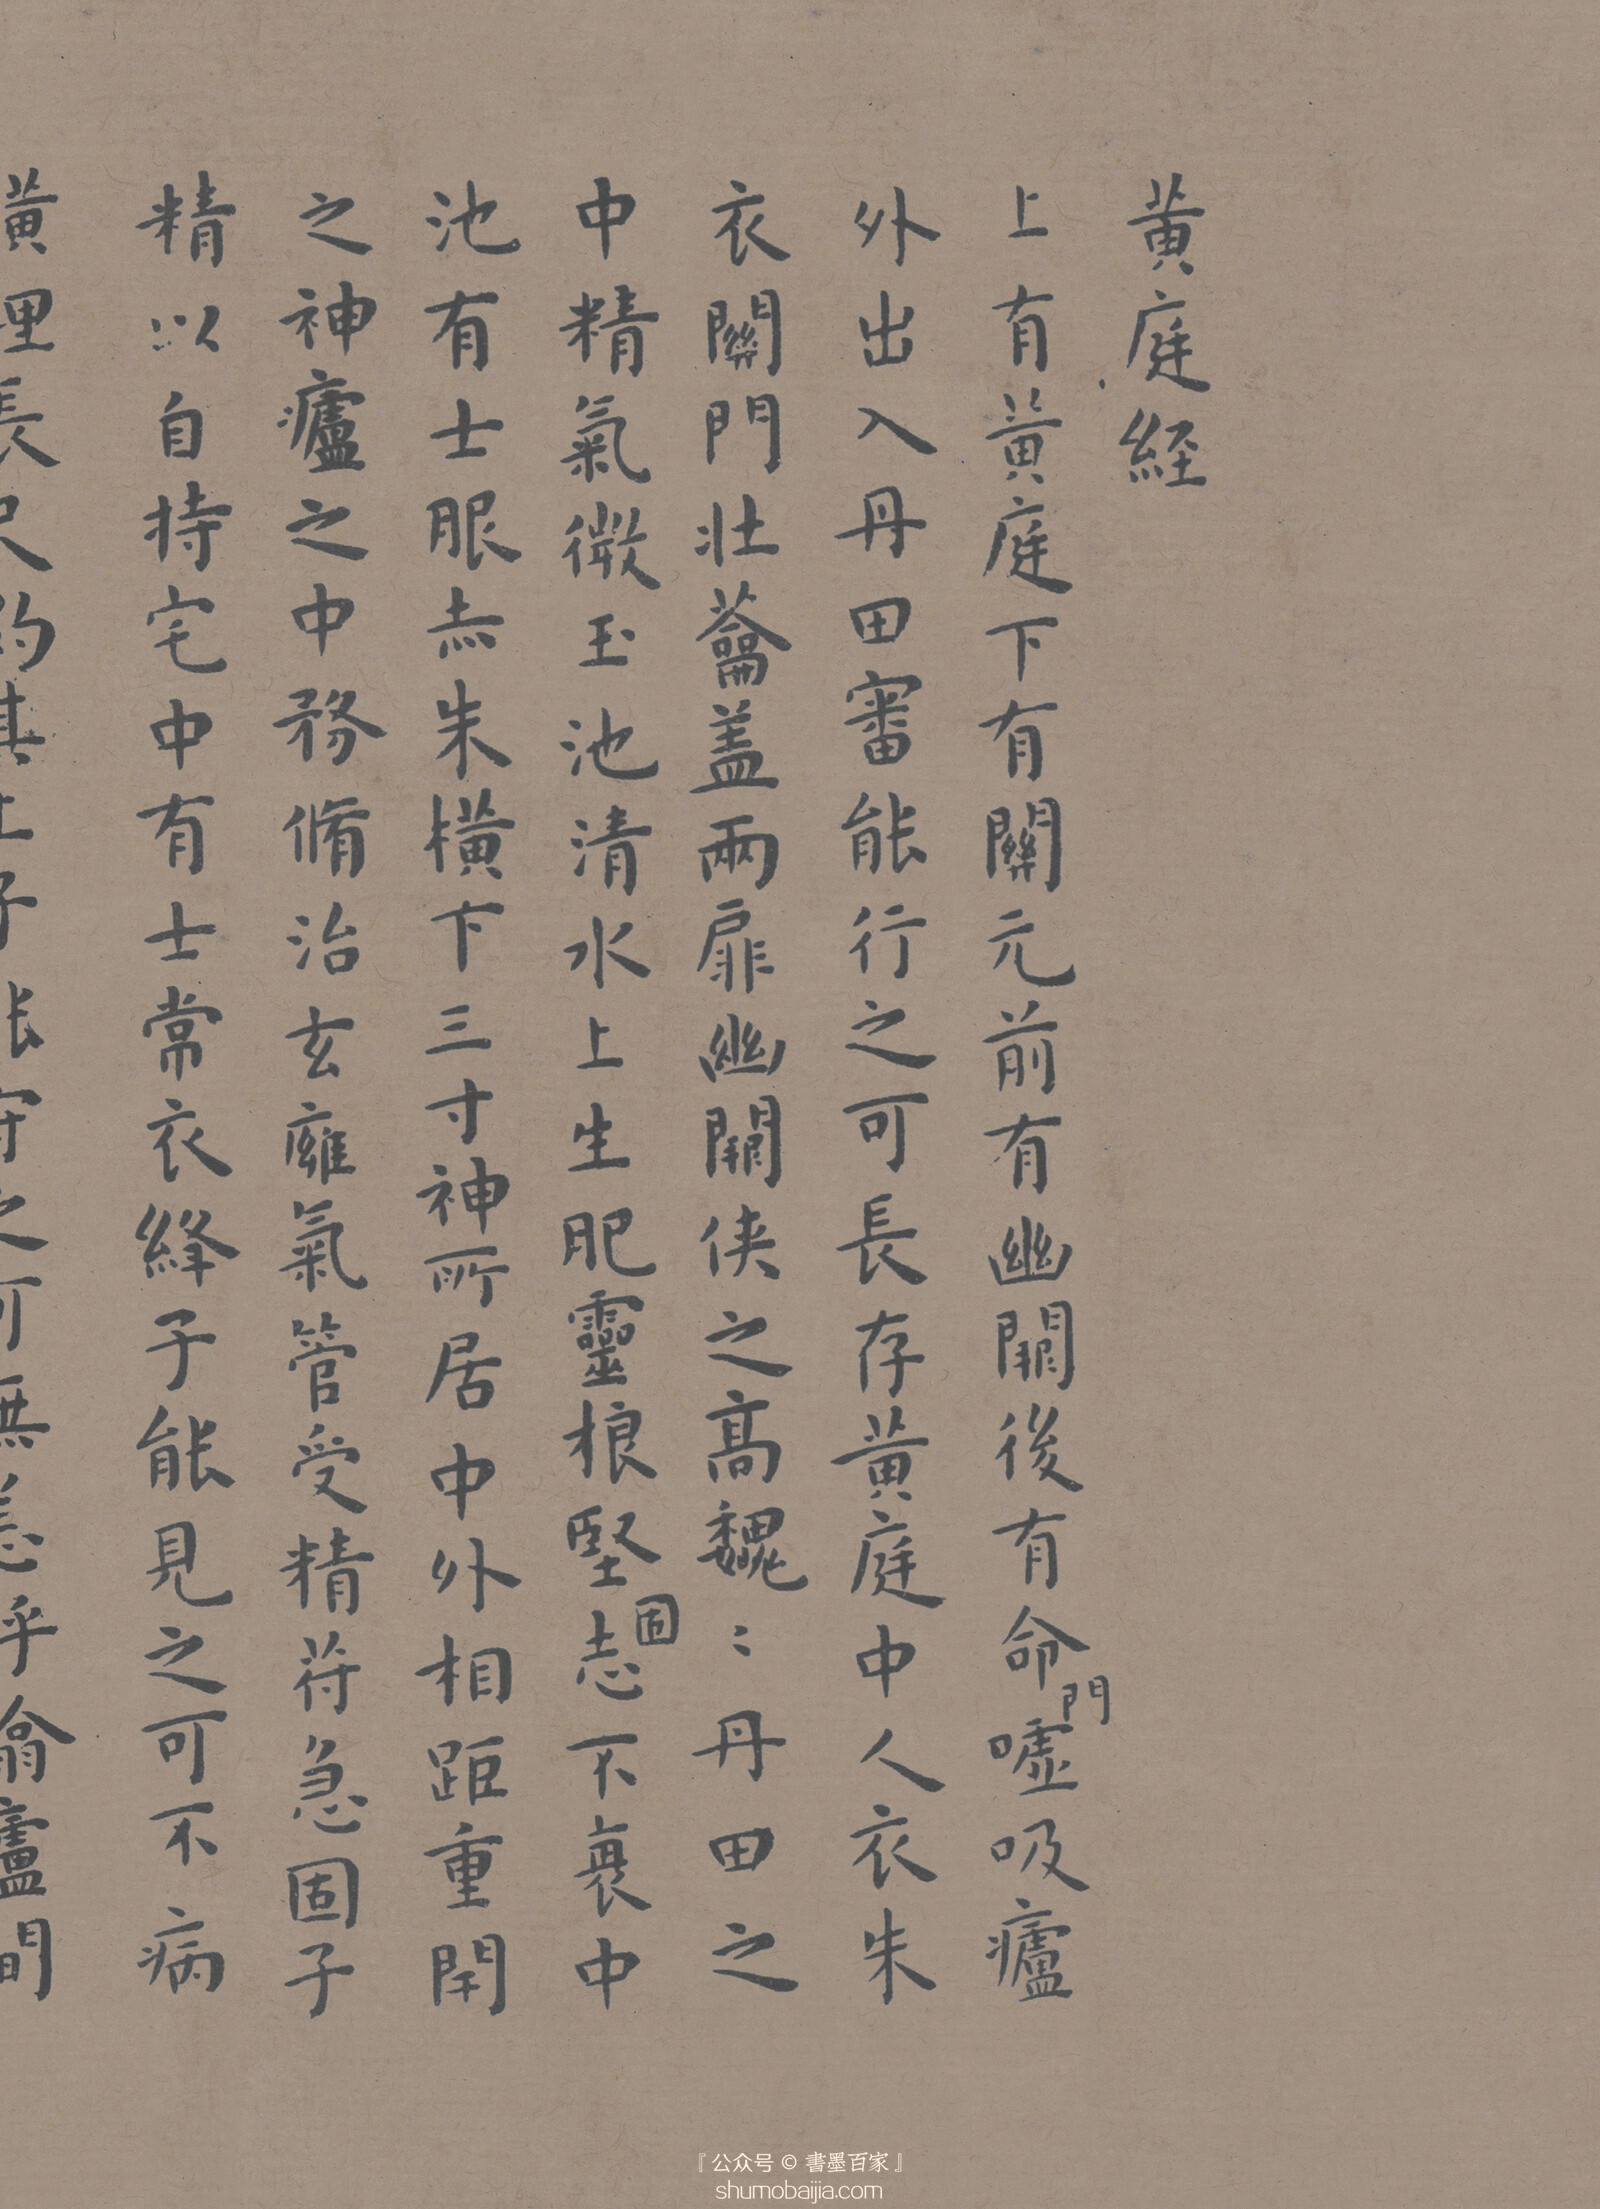 黄庭経
上有黄庭下有關元前有幽闕後有命門噓吸廬
外出入丹田審能行之可長存黄庭中人衣朱
衣關門壯蘥盖兩扉幽闕侠之高魏:丹田之
中精氣微玉池清水上生肥靈根堅固志不衰中
池有士服赤朱橫下三寸神所居中外相距重閇
之神廬之中務脩治玄㢕氣管受精苻急固子
精以自持宅中有士常衣絳子能見之可不病
橫理長尺約其上子能守之可無恙乎翕廬間
『公众号 © 書墨百家』
shumobaijia.com